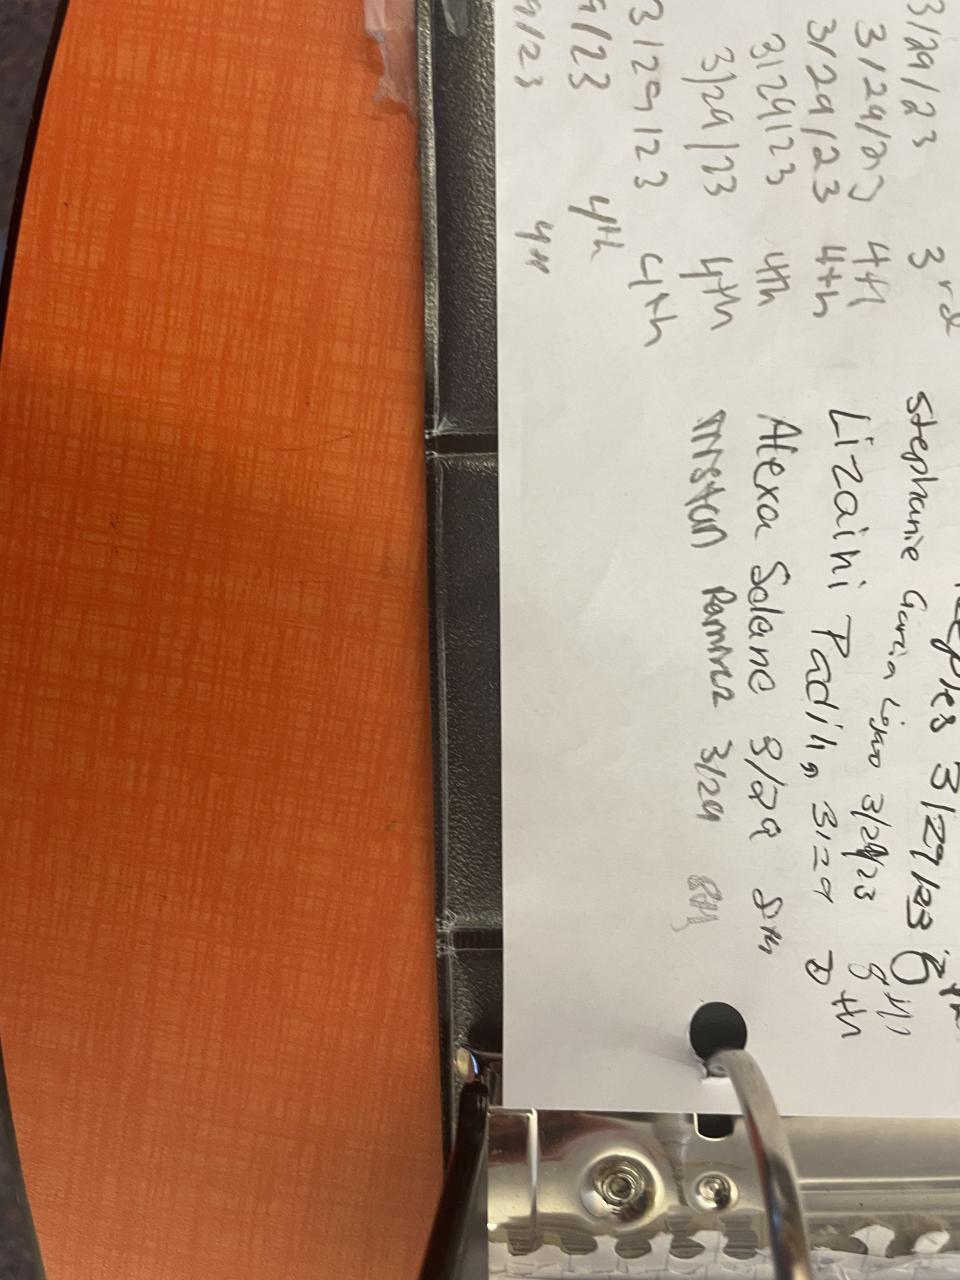 3/29/23 3rd
3/29/23 4th Stephanie Garcia 3/29/23 8th
3/29/23 4th Lizaini Padilla 3/29 8th
3/29/23 4th Alexa Solano 3/29 8th
3/29/23 4th Tristan Ramirez 3/29 8th
3/29/23 4th
9/23 4th
9/23 4th
3/29/23 8th